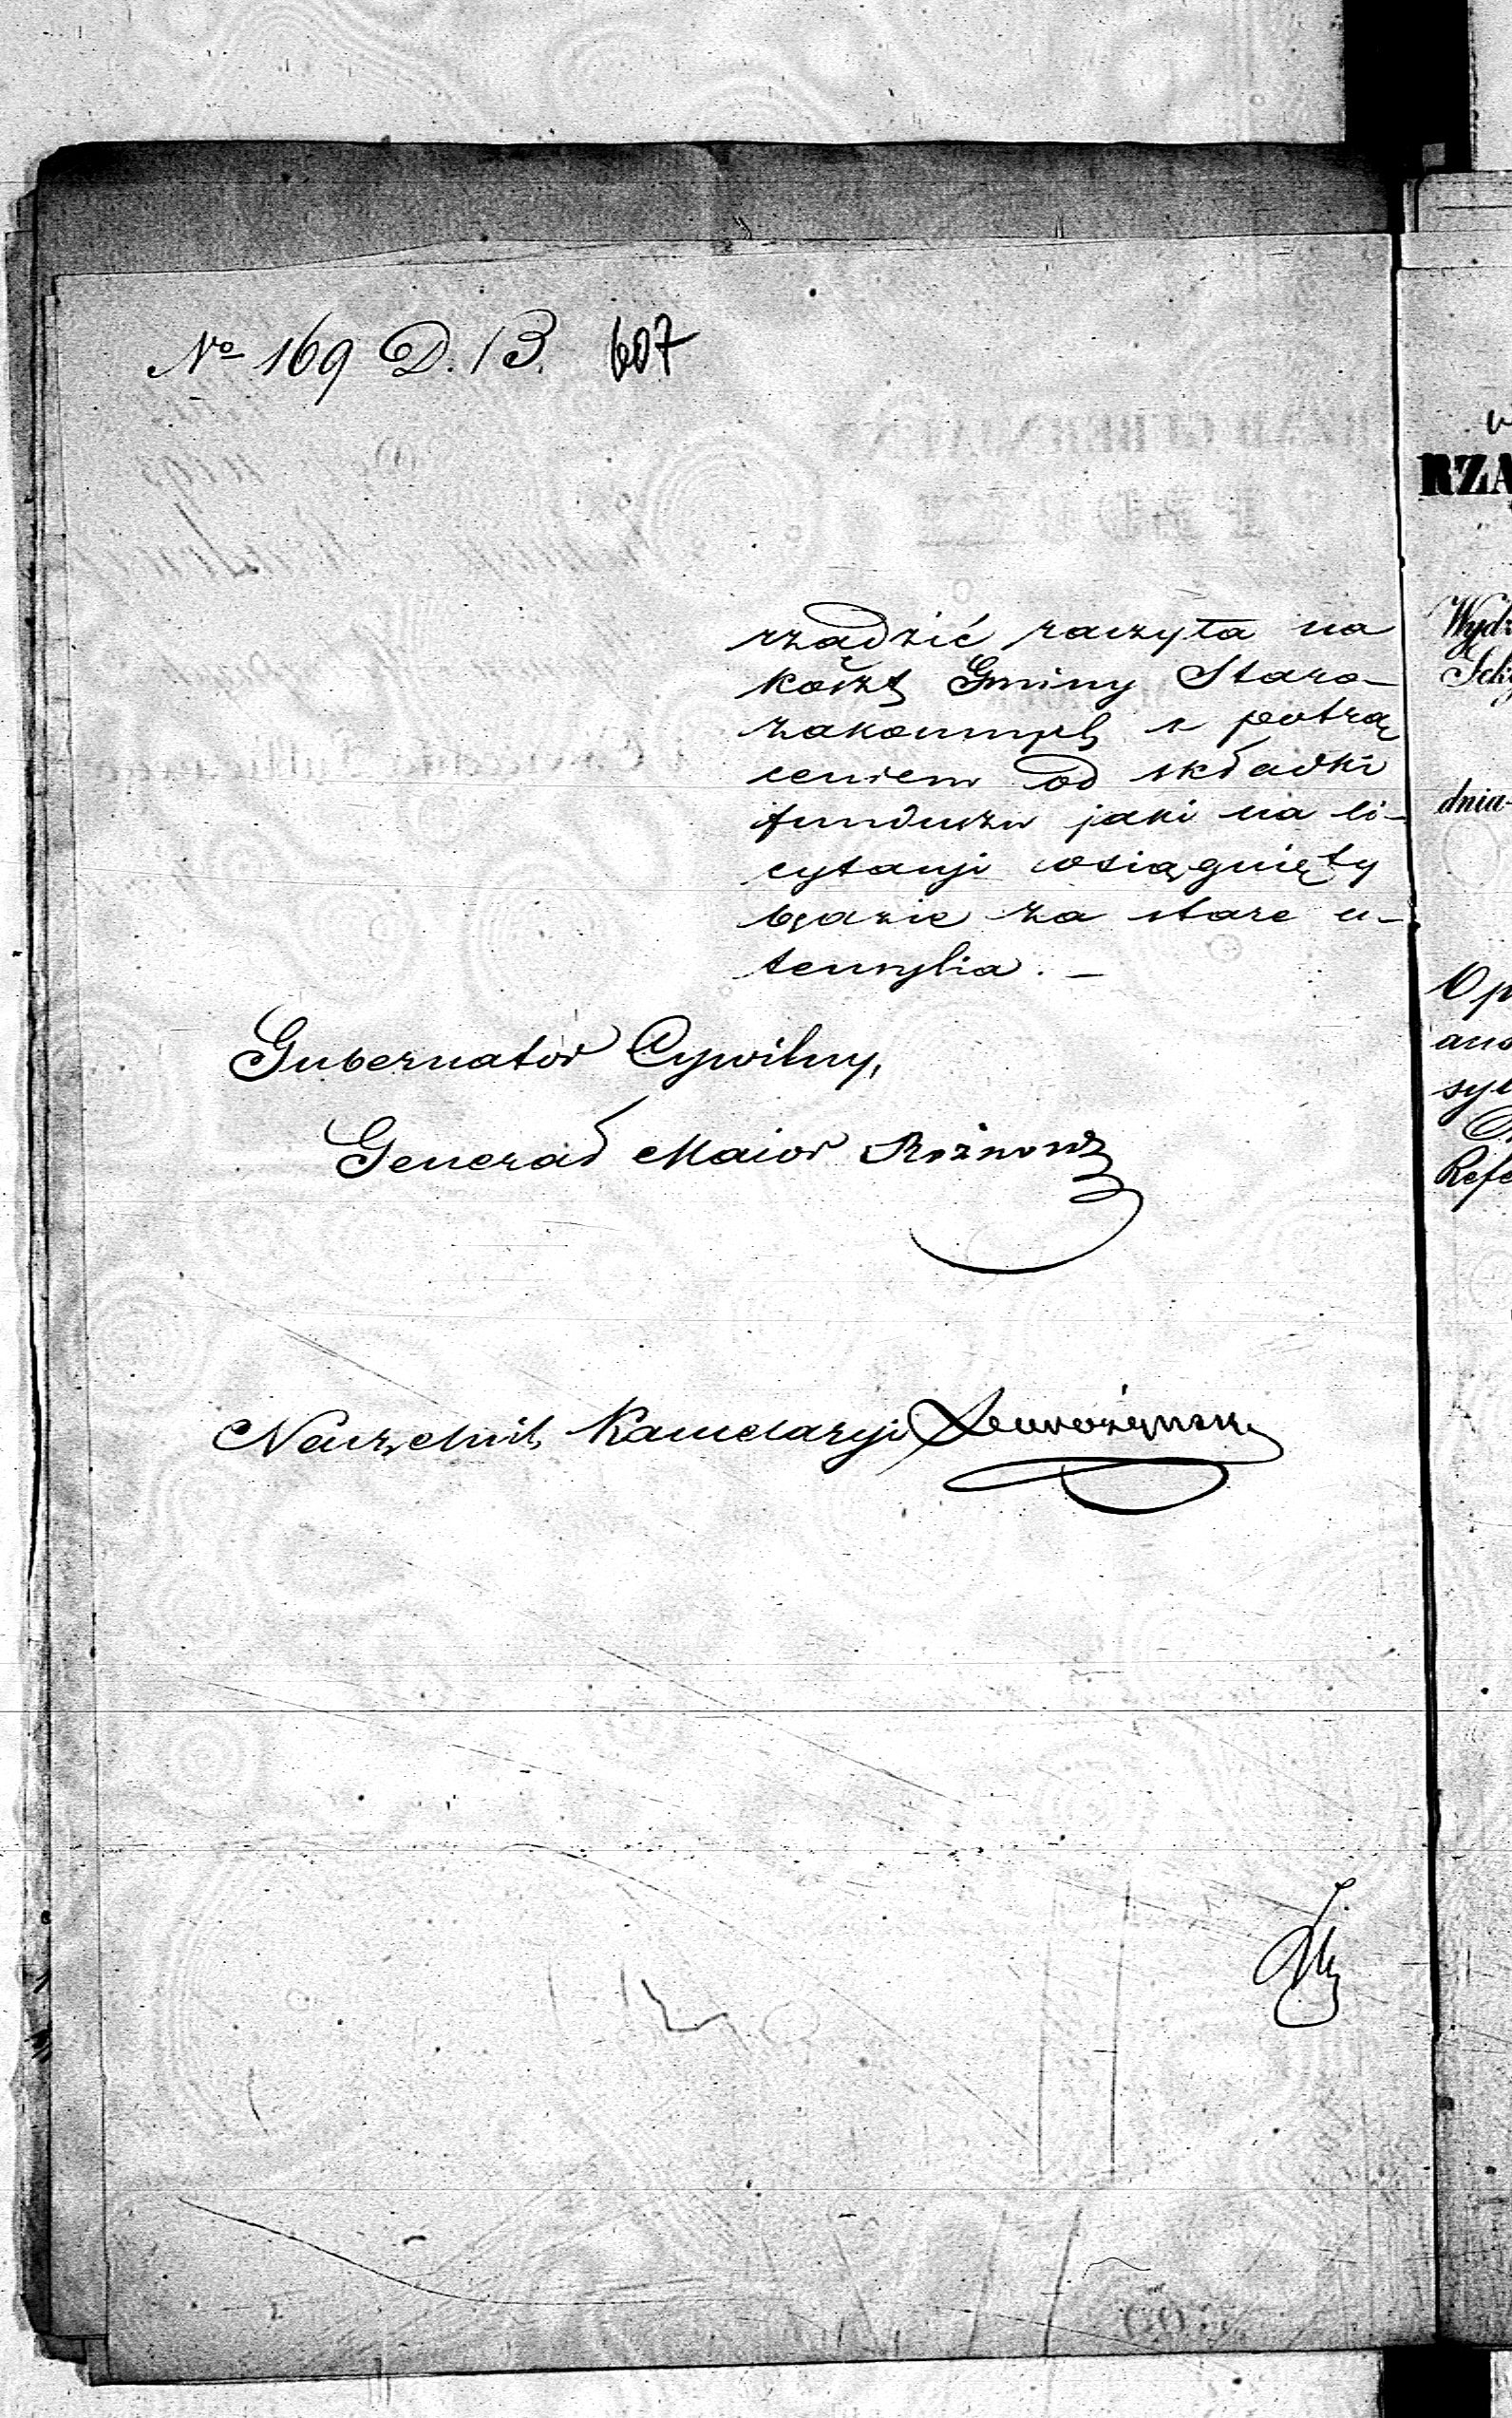 No 169 D. 13. 607
rządzić raczyła na
koszt Gminy Staro-
zakonnych z potrą
ceniem od składki
funduszu jaki na li-
cytacyi osiągnięty
będzie za stare u-
tensylia. —
Gubernator Cywilny,
Generał Maior Rożnow
Naczelnik Kancelaryi
RZĄ
Wydz
Sek
dnia